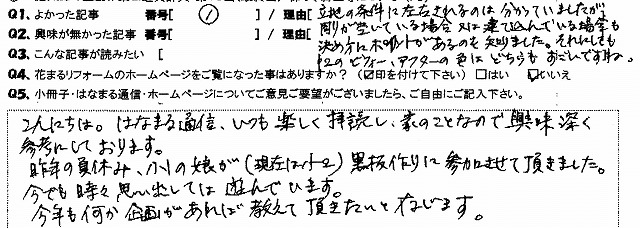 Q1. よかった記事 番号[ ① ] / 理由[ 立地の条件に左右されるのは分かっていましたが、
Q2. 興味が無かった記事 番号[ ] / 理由[ 両が空いている場合又は建て込んでいる場合も
決め方にポイントがあるのを知りました。それにしても
Q3. こんな記事が読みたい [ P2のビフォー・アフターの 色はどちらもすごいですね。
Q4. 花まるリフォームのホームページをご覧になった事はありますか？ (☑印を付けて下さい) □はい ☑いいえ
Q5. 小冊子・はなまる通信・ホームページについてご意見ご要望がございましたら、ご自由にご記入下さい。
こんにちは。はなまる通信、いつも楽しく拝読し、家のことなので興味深く
参考にしております。
昨年の夏休み、小1の娘が(現在は小2)黒板作りに参加させて頂きました。
今でも時々思い出しては遊んでいます。
今年も何か企画があれば教えて頂きたいと存じます。